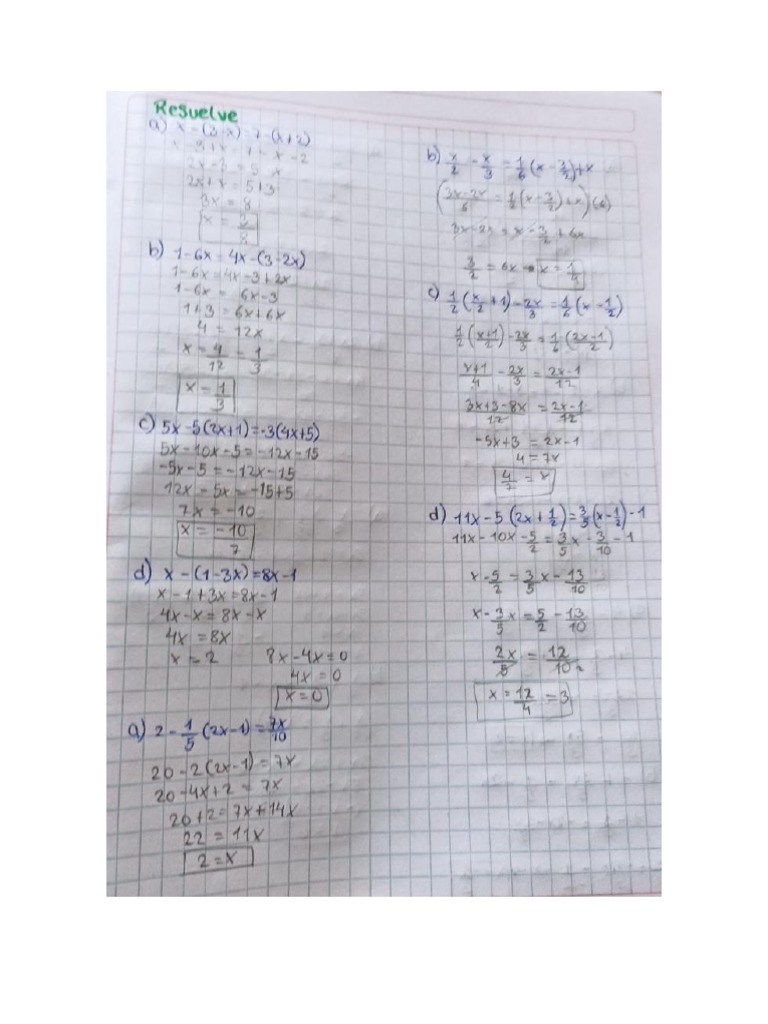 Resuelve
a) x - (3-x) = 7 - (x+2)
x - 3 + x = 7 - x - 2
2x - 3 = 5 - x
2x + x = 5 + 3
3x = 8
x = 3/8
b) 1 - 6x = 4x - (3 - 2x)
1 - 6x = 4x - 3 + 2x
1 - 6x = 6x - 3
1 + 3 = 6x + 6x
4 = 12x
x = 4/12 = 1/3
x = 1/3
c) 5x - 5(2x+1) = -3(4x+5)
5x - 10x - 5 = -12x - 15
-5x - 5 = -12x - 15
12x - 5x = -15 + 5
7x = -10
x = -10/7
d) x - (1 - 3x) = 8x - 1
x - 1 + 3x = 8x - 1
4x - x = 8x - x
4x = 8x
x = 2
8x - 4x = 0
4x = 0
x = 0
a) 2 - 1/5 (2x - 1) = 7x/10
20 - 2(2x - 1) = 7x
20 - 4x + 2 = 7x
20 + 2 = 7x + 14x
22 = 11x
2 = x
b) x/2 - x/3 = 1/6 (x - 3/2) + x
(3x - 2x/6 = 1/2 (x - 3/2) + x) (6)
3x - 2x = x - 3/2 + 6x
3/2 = 6x → x = 1/4
c) 1/2 (x/2 + 1) - 2x/3 = 1/6 (x - 1/2)
1/2 (x+1/2) - 2x/3 = 1/6 (2x-1/2)
x+1/4 - 2x/3 = 2x-1/12
3x+3-8x/12 = 2x-1/12
-5x + 3 = 2x - 1
4 = 7x
4/7 = x
d) 11x - 5 (2x + 1/2) = 3/5 (x - 1/2) - 1
11x - 10x - 5/2 = 3/5 x - 3/10 - 1
x - 5/2 = 3/5 x - 13/10
x - 3/5 x = 5/2 - 13/10
2x/5 = 12/10 2
x = 12/4 = 3